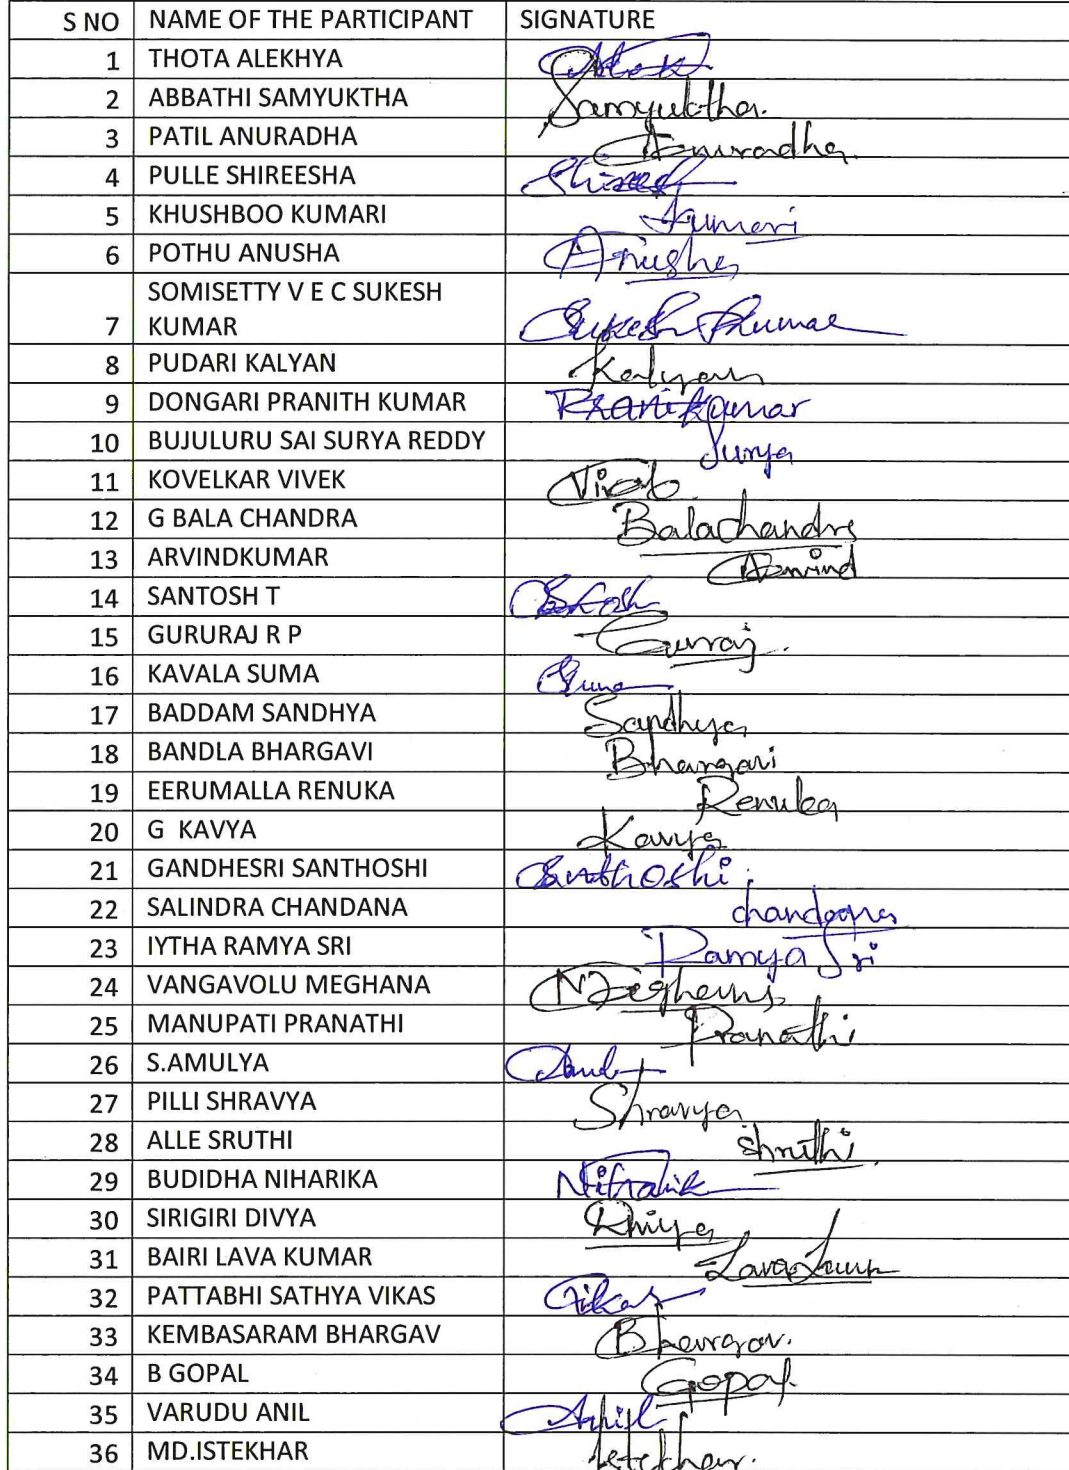 S NO NAME OF THE PARTICIPANT SIGNATURE
1 THOTA ALEKHYA
2 ABBATHI SAMYUKTHA Samyuktha.
3 PATIL ANURADHA Anuradha.
4 PULLE SHIREESHA
5 KHUSHBOO KUMARI Kumari
6 POTHU ANUSHA Anusha
SOMISETTY V E C SUKESH
7 KUMAR Sukesh Kumar
8 PUDARI KALYAN Kalyan
9 DONGARI PRANITH KUMAR Pranitkumar
10 BUJULURU SAI SURYA REDDY Surya
11 KOVELKAR VIVEK
12 G BALA CHANDRA Balachandra
13 ARVINDKUMAR Arvind
14 SANTOSH T
15 GURURAJ R P Gururaj.
16 KAVALA SUMA Suma
17 BADDAM SANDHYA Sandhya
18 BANDLA BHARGAVI Bhargavi
19 EERUMALLA RENUKA Renuka
20 G KAVYA Kavya
21 GANDHESRI SANTHOSHI Santhoshi.
22 SALINDRA CHANDANA
23 IYTHA RAMYA SRI Ramya Sri
24 VANGAVOLU MEGHANA
25 MANUPATI PRANATHI Pranathi
26 S.AMULYA
27 PILLI SHRAVYA Shravya
28 ALLE SRUTHI Shruthi
29 BUDIDHA NIHARIKA
30 SIRIGIRI DIVYA
31 BAIRI LAVA KUMAR
32 PATTABHI SATHYA VIKAS Vikas
33 KEMBASARAM BHARGAV Bhargav.
34 B GOPAL Gopal.
35 VARUDU ANIL
36 MD.ISTEKHAR Istekhar.